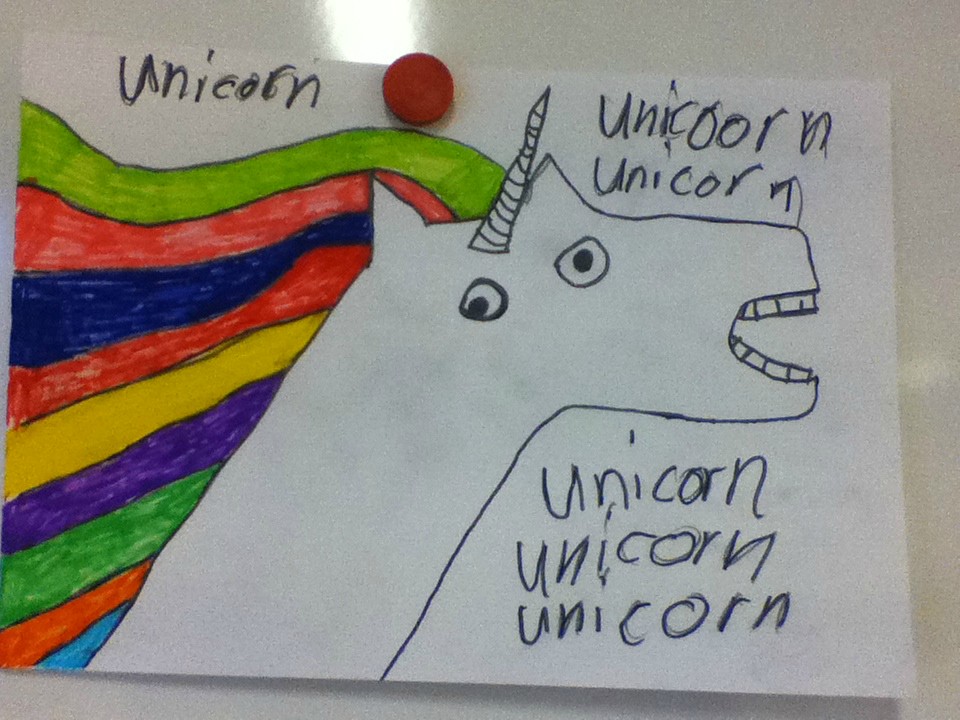 Unicorn
Unicoorn
unicorn
unicorn
unicorn
unicorn